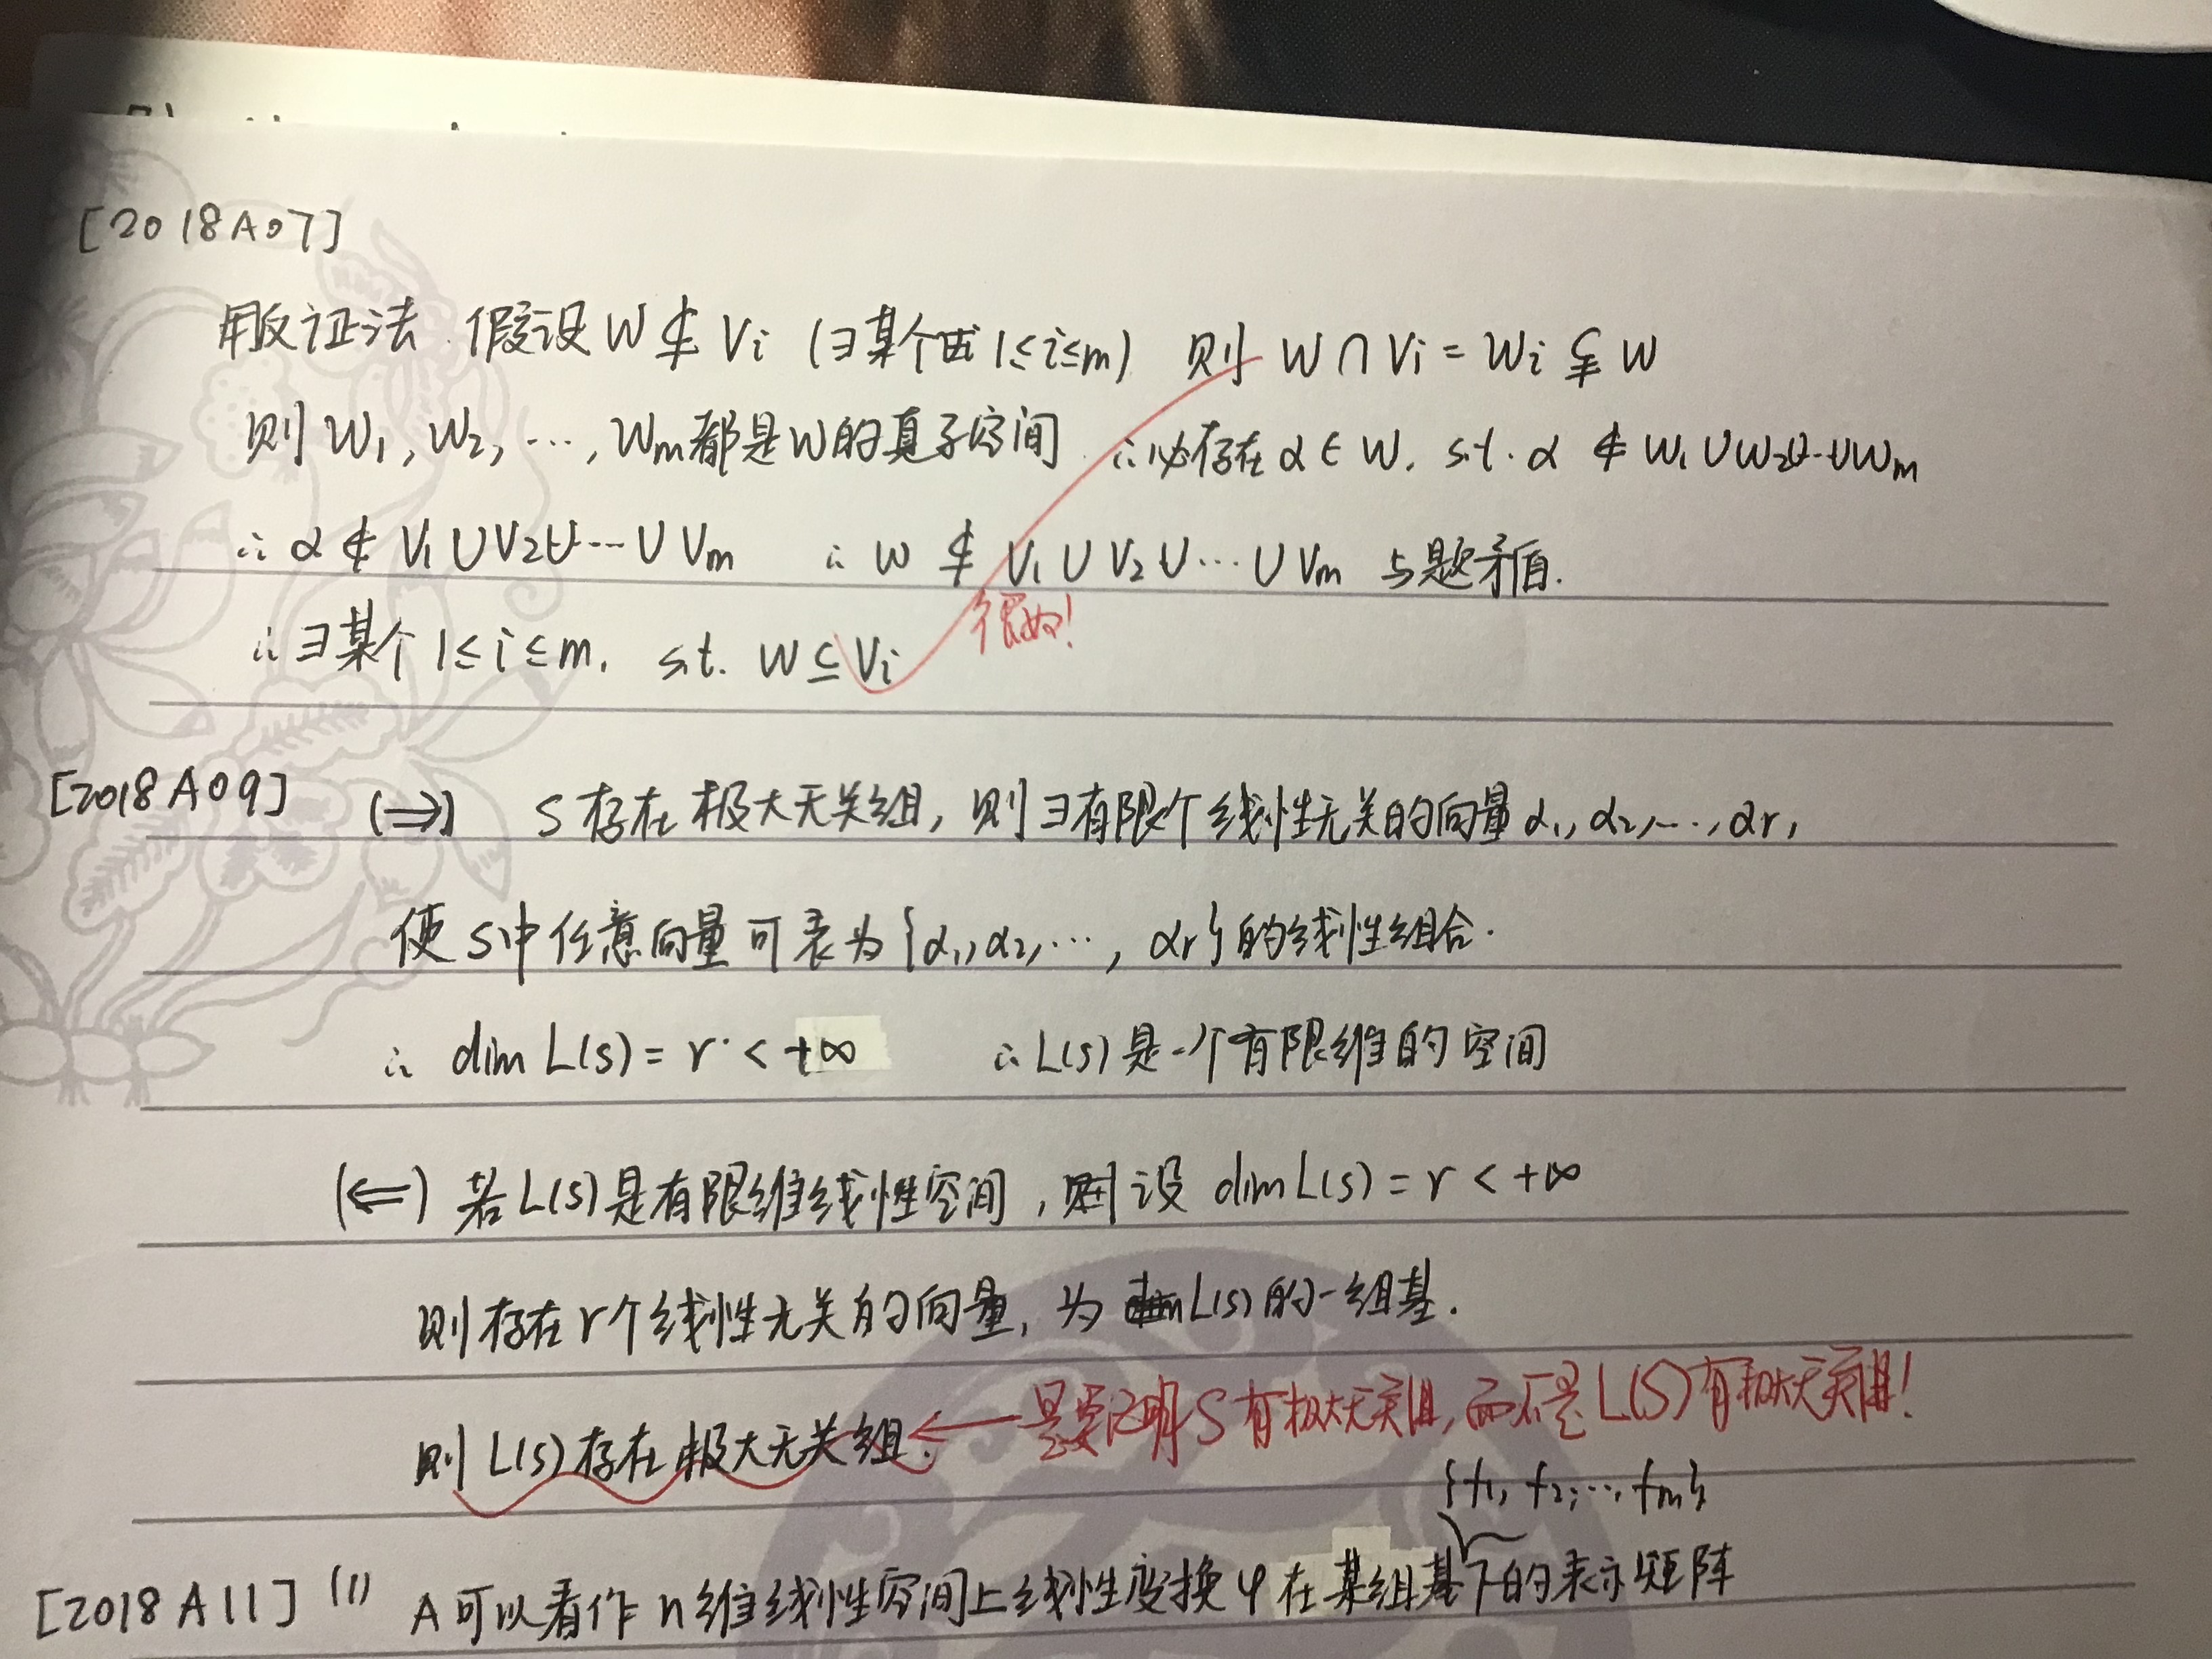 [2018A07]
用反证法 假设W⊈Vi (∃某个 1≤i≤m) 则 W∩Vi=Wi⊊W
则W1,W2,…,Wm都是W的真子空间 ∴必存在α∈W, s.t. α∉W1∪W2∪…∪Wm
∴α∉V1∪V2∪…∪Vm ∴W⊈V1∪V2∪…∪Vm 与题矛盾.
很好!
∴∃某个1≤i≤m, s.t. W⊆Vi
[2018A09] (⇒) S存在极大无关组,则∃有限个线性无关的向量α1,α2,…,αr,
使S中任意向量可表为{α1,α2,…,αr}的线性组合.
∴ dim L(S)=r<+∞ ∴L(S)是一个有限维的空间
(⇐)若L(S)是有限维线性空间,则设dim L(S)=r<+∞
则存在r个线性无关的向量,为L(S)的一组基.
则L(S)存在极大无关组. ←是要证明S有极大无关组,而不是L(S)有极大无关组!
{f1,f2,…,fm}
[2018A11] (1) A可以看作n维线性空间上线性变换φ在某组基下的表示矩阵